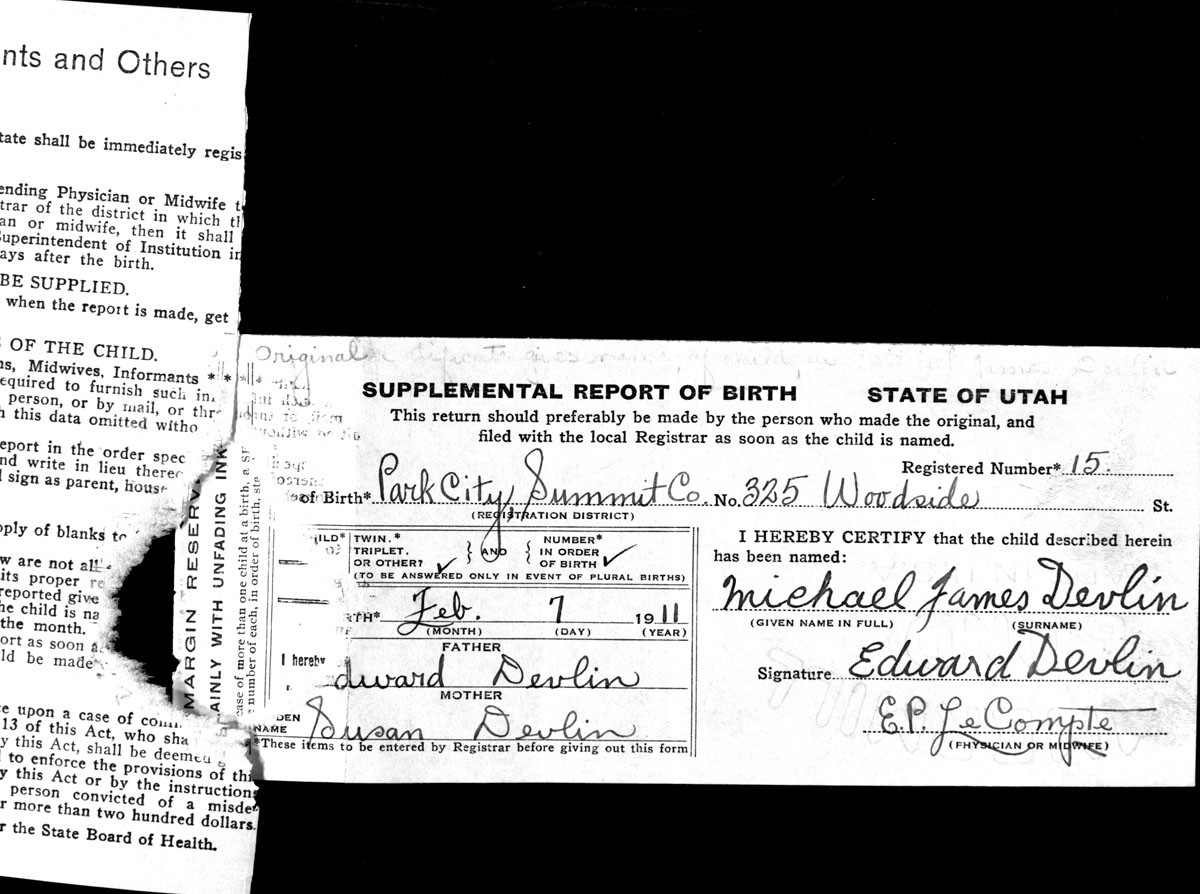 nts and Others
tate shall be immediately regis
ending Physician or Midwife t
trar of the district in which th
an or midwife, then it shall
Superintendent of Institution in
ays after the birth.
BE SUPPLIED.
when the report is made, get
OF THE CHILD.
ns, Midwives, Informants * *
equired to furnish such in.
person, or by mail, or thr
h this data omitted witho
eport in the order spec
nd write in lieu thereo
sign as parent, house
pply of blanks to
w are not all
its proper re
reported give
he child is na
the month.
ort as soon a
ld be made
e upon a case of com
13 of this Act, who sha
y this Act, shall be deemed
to enforce the provisions of thi
y this Act or by the instructions
person convicted of a misde
r more than two hundred dollars.
r the State Board of Health.
MARGIN RESERV
AINLY WITH UNFADING INK
case of more than one child at a birth, a SE
number of each, in order of birth, sta
Original gives name of child
SUPPLEMENTAL REPORT OF BIRTH STATE OF UTAH
This return should preferably be made by the person who made the original, and
filed with the local Registrar as soon as the child is named.
Registered Number* 15.
of Birth* Park City, Summit Co. No. 325 Woodside St.
(REGISTRATION DISTRICT)
ILD* TWIN.* TRIPLET. OR OTHER? ✓ } AND { NUMBER* IN ORDER OF BIRTH ✓
(TO BE ANSWERED ONLY IN EVENT OF PLURAL BIRTHS)
RTH* Feb. 7 1911
(MONTH) (DAY) (YEAR)
FATHER
I hereby
dward Devlin
MOTHER
DEN
NAME Susan Devlin
*These items to be entered by Registrar before giving out this form
I HEREBY CERTIFY that the child described herein
has been named:
Michael James Devlin
(GIVEN NAME IN FULL) (SURNAME)
Signature Edward Devlin
E.P. Le Compte
(PHYSICIAN OR MIDWIFE)